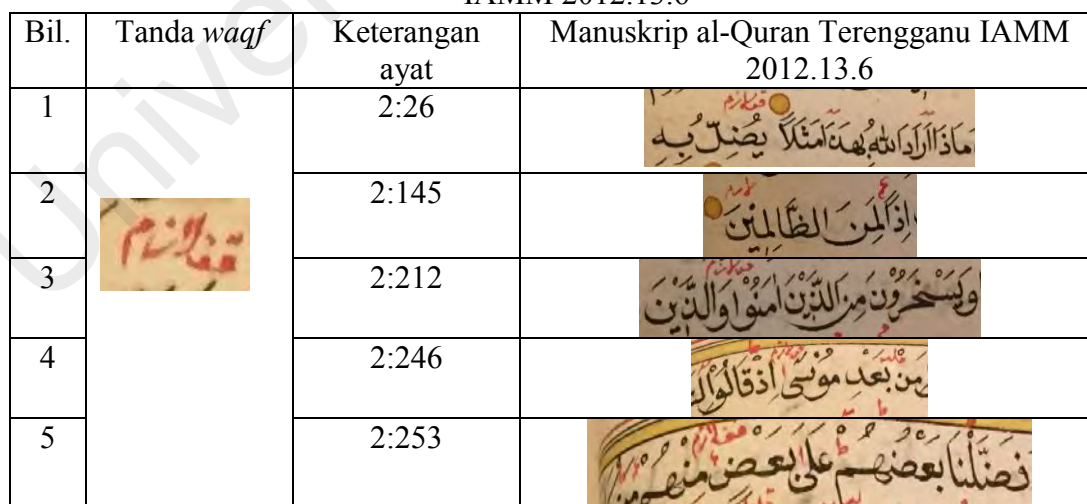 IAMM 2012.13.6
Bil. Tanda waqf Keterangan ayat Manuskrip al-Quran Terengganu IAMM 2012.13.6
1 2:26
قف لازم
مَاذَا اَرَادَ اللهُ بِهَذَا مَثَلًا يُضِلُّ بِهِ
2 2:145
لازم
اِذًا لَمِنَ الظَّالِمِيْنَ
قف لازم
3 2:212
قف لازم
وَيَسْخَرُوْنَ مِنَ الَّذِيْنَ اٰمَنُوْا وَالَّذِيْنَ
4 2:246
مِنْ بَعْدِ مُوْسَى اِذْ قَالُوْا
5 2:253
قف لازم
فَضَّلْنَا بَعْضَهُمْ عَلَى بَعْضٍ مِنْهُمْ مَنْ
Univer